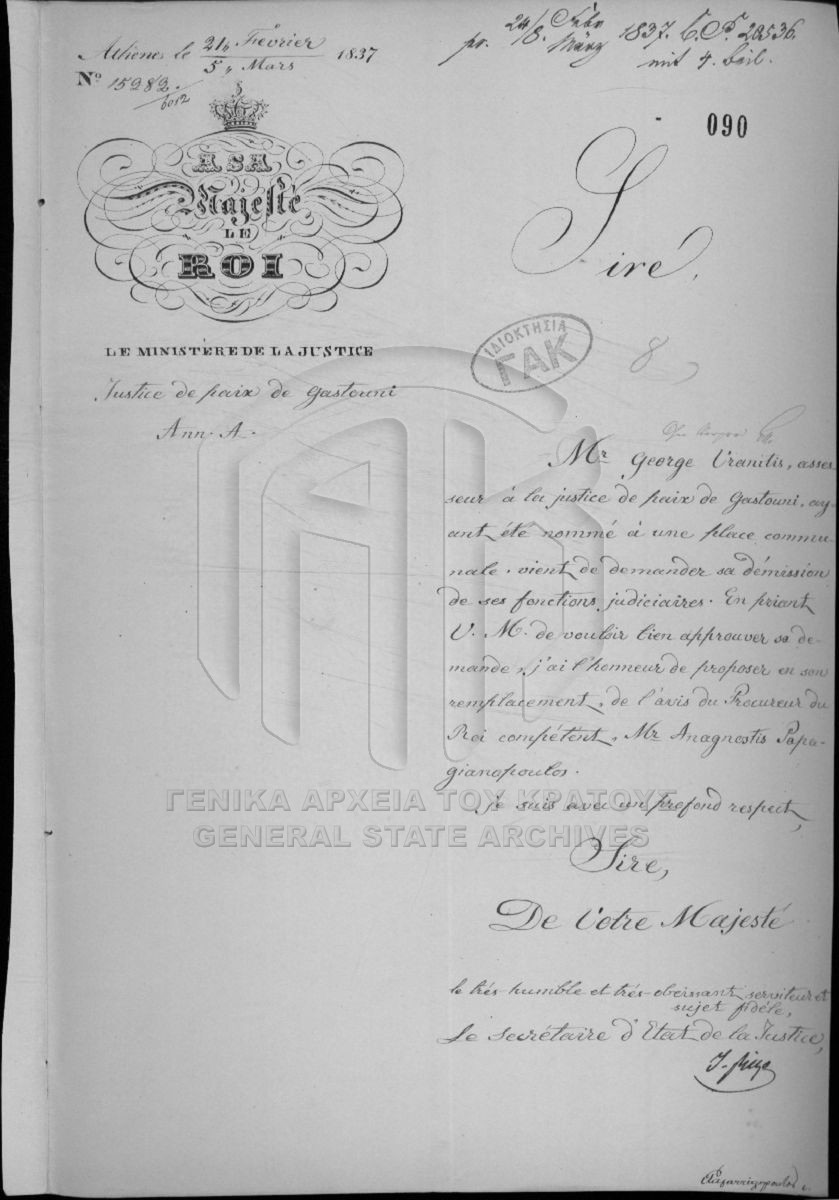 Athènes le 21/5 Février/Mars 1837
Nº 15282.
6012
pr. 24/8. Febr/März 1837. 20536.
mit 4. Beil.
090
A SA
Majesté
LE
ROI
LE MINISTÈRE DE LA JUSTICE
Justice de paix de Gastouni
Ann. A.
Sire,
ΙΔΙΟΚΤΗΣΙΑ
ΓΑΚ
8
Mr George Vranitis, asses
seur à la justice de paix de Gastouni, ay-
ant été nommé à une place commu-
nale, vient de demander sa démission
de ses fonctions judiciaires. En priant
V. M. de vouloir bien approuver sa de-
mande, j'ai l'honneur de proposer en son
remplacement, de l'avis du Procureur du
Roi compétent, Mr Anagnostis Papa-
gianopoulos.
je suis avec un profond respect,
Sire,
De Votre Majesté
le très-humble et très-obeissant serviteur et
sujet fidèle,
Le secrétaire d'Etat de la Justice,
ΓΕΝΙΚΑ ΑΡΧΕΙΑ ΤΟΥ ΚΡΑΤΟΥΣ
GENERAL STATE ARCHIVES